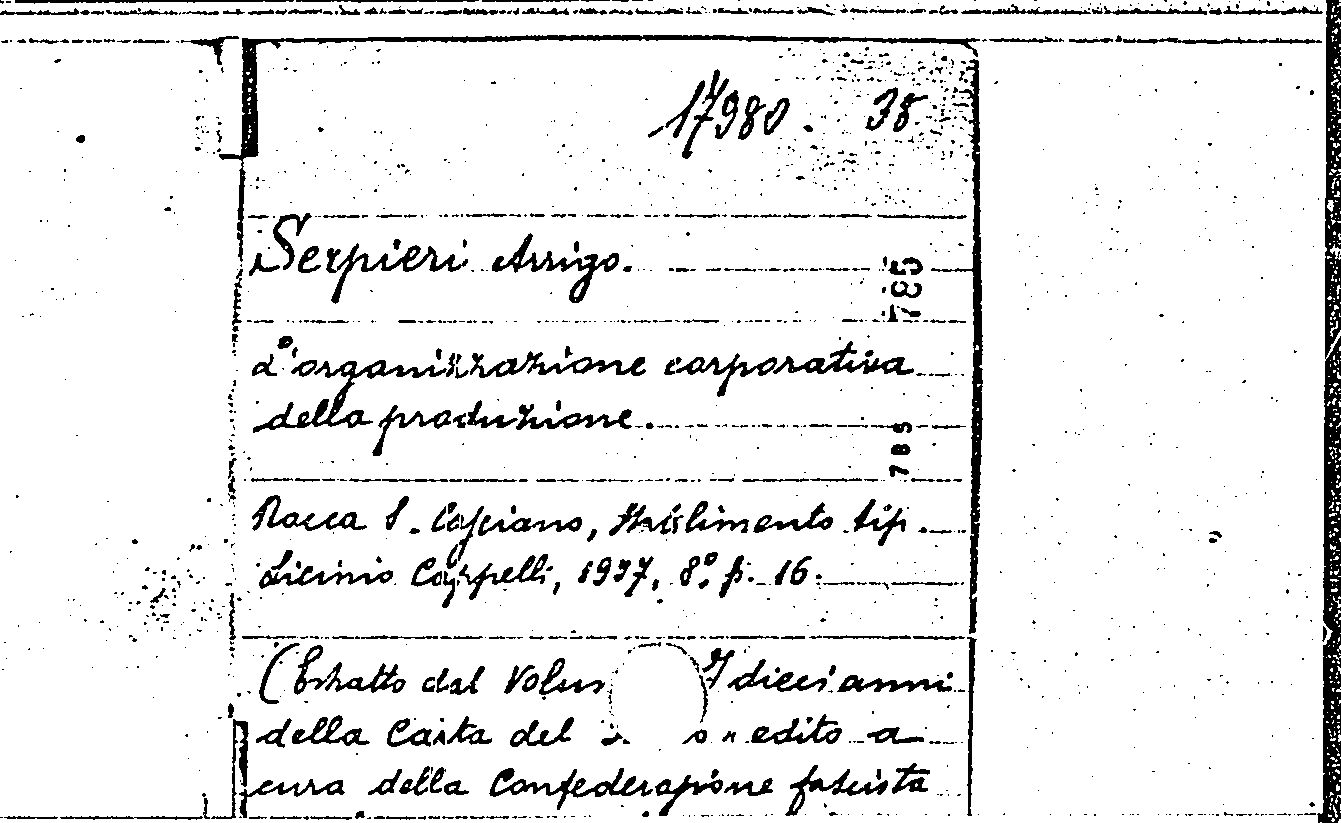 17980. 38
Serpieri Arrigo.
785
L'organizzazione corporativa
della produzione.
785
Rocca S. Casciano, Stabilimento tip.
Licinio Cappelli, 1937, 8º. p. 16.
(Estratto dal Volum "I dieci anni
della Carta del o" edito a
cura della Confederazione fascista